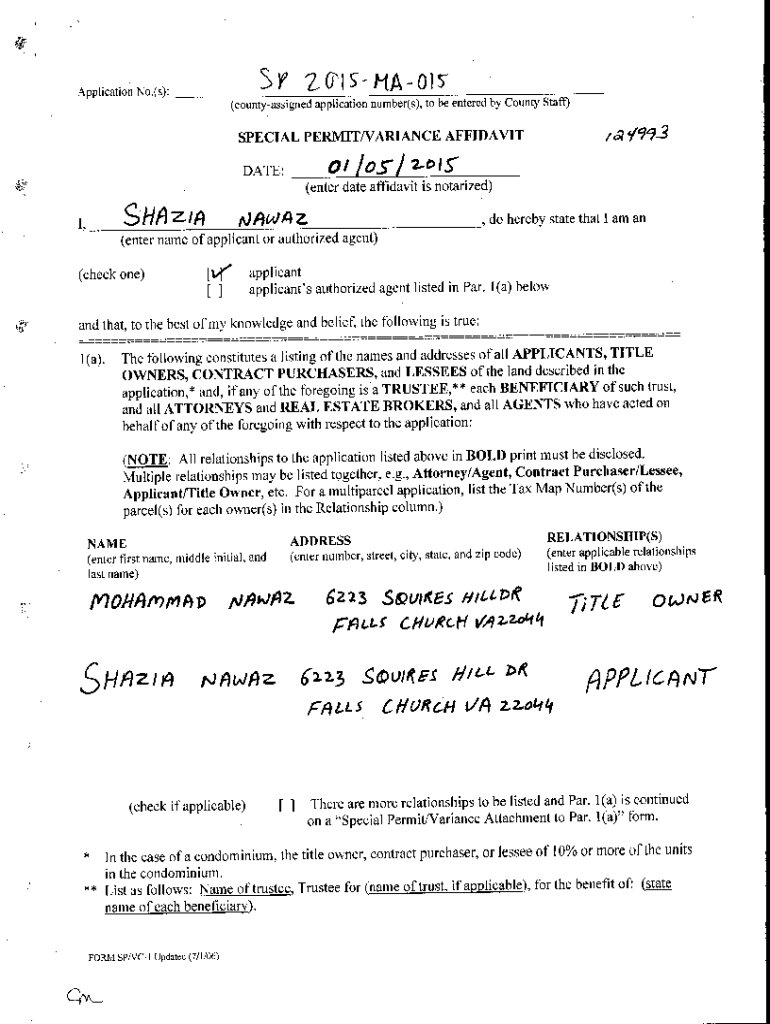 Application No.(s): SP 2015-MA-015
(county-assigned application number(s), to be entered by County Staff)
SPECIAL PERMIT/VARIANCE AFFIDAVIT 124993
DATE: 01/05/2015
(enter date affidavit is notarized)
I, SHAZIA NAWAZ , do hereby state that I am an
(enter name of applicant or authorized agent)
(check one) [✓] applicant
[ ] applicant's authorized agent listed in Par. 1(a) below
and that, to the best of my knowledge and belief, the following is true:
1(a). The following constitutes a listing of the names and addresses of all APPLICANTS, TITLE
OWNERS, CONTRACT PURCHASERS, and LESSEES of the land described in the
application,* and, if any of the foregoing is a TRUSTEE,** each BENEFICIARY of such trust,
and all ATTORNEYS and REAL ESTATE BROKERS, and all AGENTS who have acted on
behalf of any of the foregoing with respect to the application:
(NOTE: All relationships to the application listed above in BOLD print must be disclosed.
Multiple relationships may be listed together, e.g., Attorney/Agent, Contract Purchaser/Lessee,
Applicant/Title Owner, etc. For a multiparcel application, list the Tax Map Number(s) of the
parcel(s) for each owner(s) in the Relationship column.)
NAME ADDRESS RELATIONSHIP(S)
(enter first name, middle initial, and (enter number, street, city, state, and zip code) (enter applicable relationships
last name) listed in BOLD above)
MOHAMMAD NAWAZ 6223 SQUIRES HILL DR TITLE OWNER
FALLS CHURCH VA 22044
SHAZIA NAWAZ 6223 SQUIRES HILL DR APPLICANT
FALLS CHURCH VA 22044
(check if applicable) [ ] There are more relationships to be listed and Par. 1(a) is continued
on a "Special Permit/Variance Attachment to Par. 1(a)" form.
* In the case of a condominium, the title owner, contract purchaser, or lessee of 10% or more of the units
in the condominium.
** List as follows: Name of trustee, Trustee for (name of trust, if applicable), for the benefit of: (state
name of each beneficiary).
FORM SP/VC-1 Updated (7/1/06)